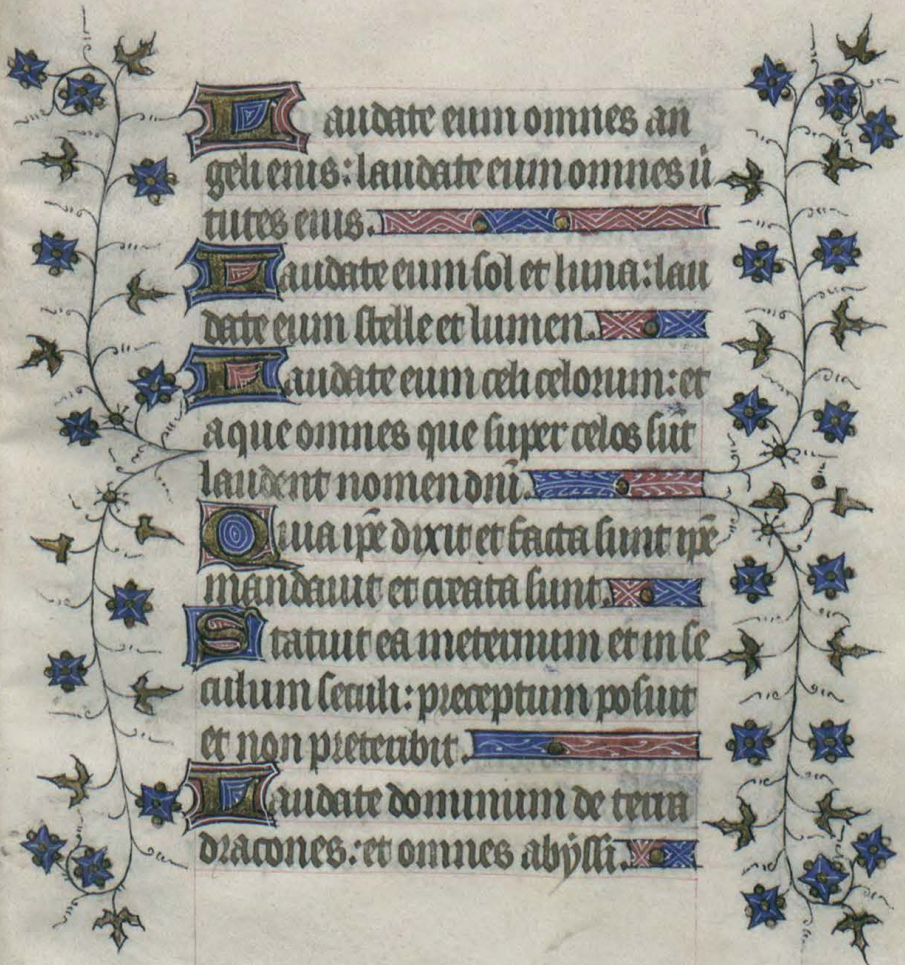 Laudate eum omnes an
geli eius: laudate eum omnes ũ
tutes eius.
Laudate eum sol et luna: lau
date eum stelle et lumen.
Laudate eum celi celorum: et
aque omnes que super celos sūt
laudent nomen dnī.
Quia ip̄e dixit et facta sunt ip̄e
mandauit et creata sunt.
Statuit ea ineternum et in se
culum seculi: preceptum posuit
et non preteribit.
Laudate dominum de terra
dracones: et omnes abyssi.